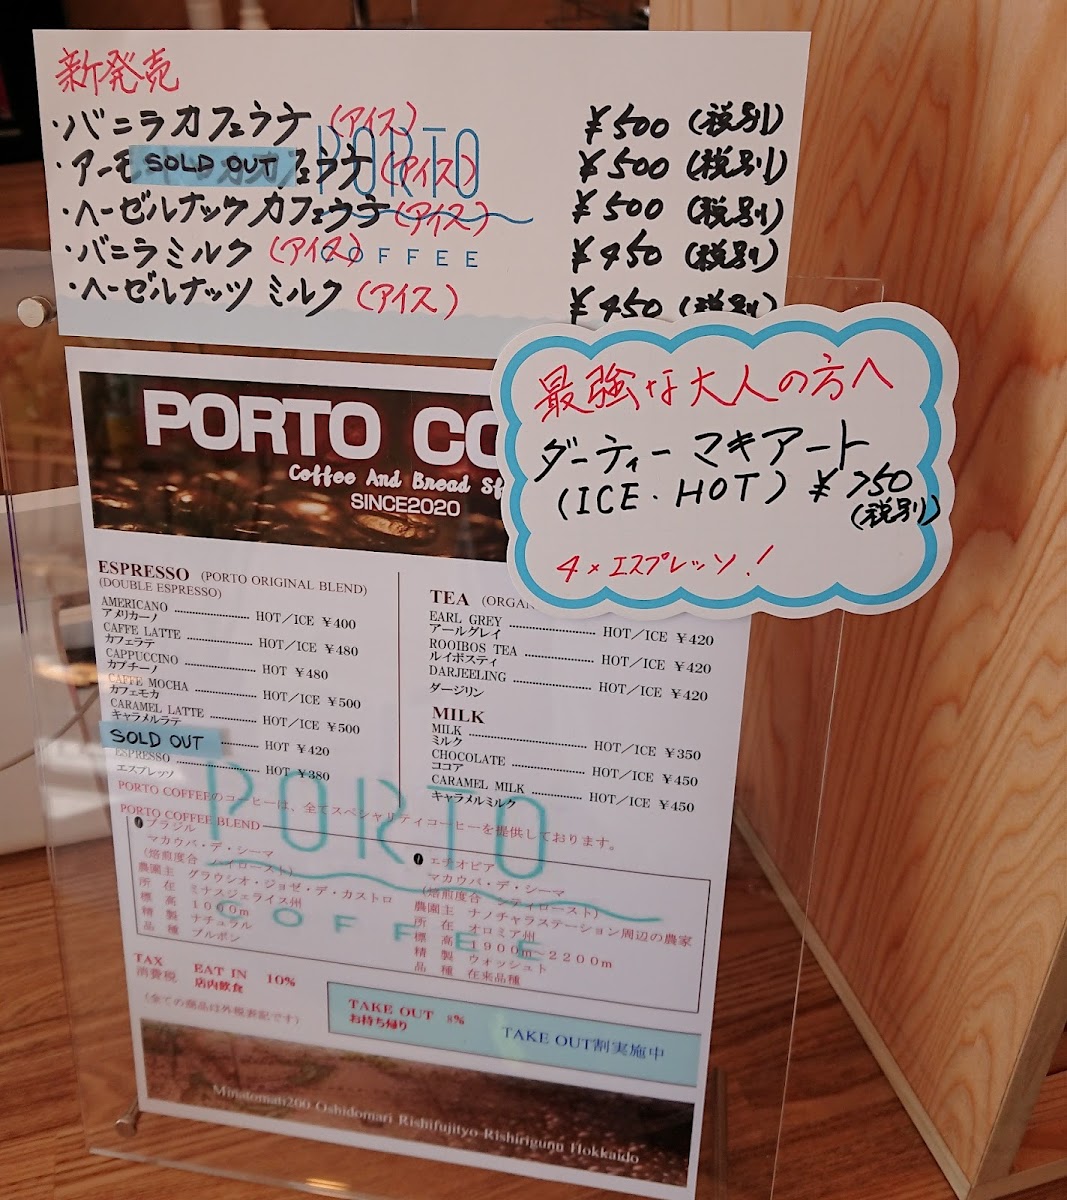 新発売
・バニラカフェラテ (アイス) ¥500 (税別)
・アーモ SOLD OUT フェラテ (アイス) ¥500 (税別)
・ヘーゼルナッツカフェラテ (アイス) ¥500 (税別)
・バニラミルク (アイス) ¥450 (税別)
・ヘーゼルナッツ ミルク (アイス) ¥450 (税別)
PORTO
COFFEE
最強な大人の方へ
ダーティーマキアート
(ICE・HOT) ¥750
(税別)
4×エスプレッソ!
PORTO CO
Coffee And Bread
SINCE2020
ESPRESSO (PORTO ORIGINAL BLEND)
(DOUBLE ESPRESSO)
AMERICANO HOT/ICE ¥400
アメリカーノ
CAFFE LATTE HOT/ICE ¥480
カフェラテ
CAPPUCCINO HOT ¥480
カプチーノ
CAFFE MOCHA HOT/ICE ¥500
カフェモカ
CARAMEL LATTE HOT/ICE ¥500
キャラメルラテ
SOLD OUT HOT ¥420
ESPRESSO HOT ¥380
エスプレッソ
TEA (ORGAN
EARL GREY HOT/ICE ¥420
アールグレイ
ROOIBOS TEA HOT/ICE ¥420
ルイボスティ
DARJEELING HOT/ICE ¥420
ダージリン
MILK
MILK HOT/ICE ¥350
ミルク
CHOCOLATE HOT/ICE ¥450
ココア
CARAMEL MILK HOT/ICE ¥450
キャラメルミルク
PORTO COFFEEのコーヒーは、全てスペシャリティコーヒーを提供しております。
PORTO COFFEE BLEND
ブラジル
マカウバ・デ・シーマ
(焙煎度合 ハイロースト)
農園主 グラウシオ・ジョゼ・デ・カストロ
所 在 ミナスジェライス州
標 高 1000m
精 製 ナチュラル
品 種 ブルボン
エチオピア
マカウバ・デ・シーマ
(焙煎度合 シティロースト)
農園主 ナノチャラステーション周辺の農家
所 在 オロミア州
標 高 1900m~2200m
精 製 ウォッシュト
品 種 在来品種
PORTO
COFFEE
TAX EAT IN 10%
消費税 店内飲食
(全ての商品は外税表記です)
TAKE OUT 8%
お持ち帰り
TAKE OUT割実施中
Minatomati200 Oshidomari Rishifujityo Rishirigunn Hokkaido